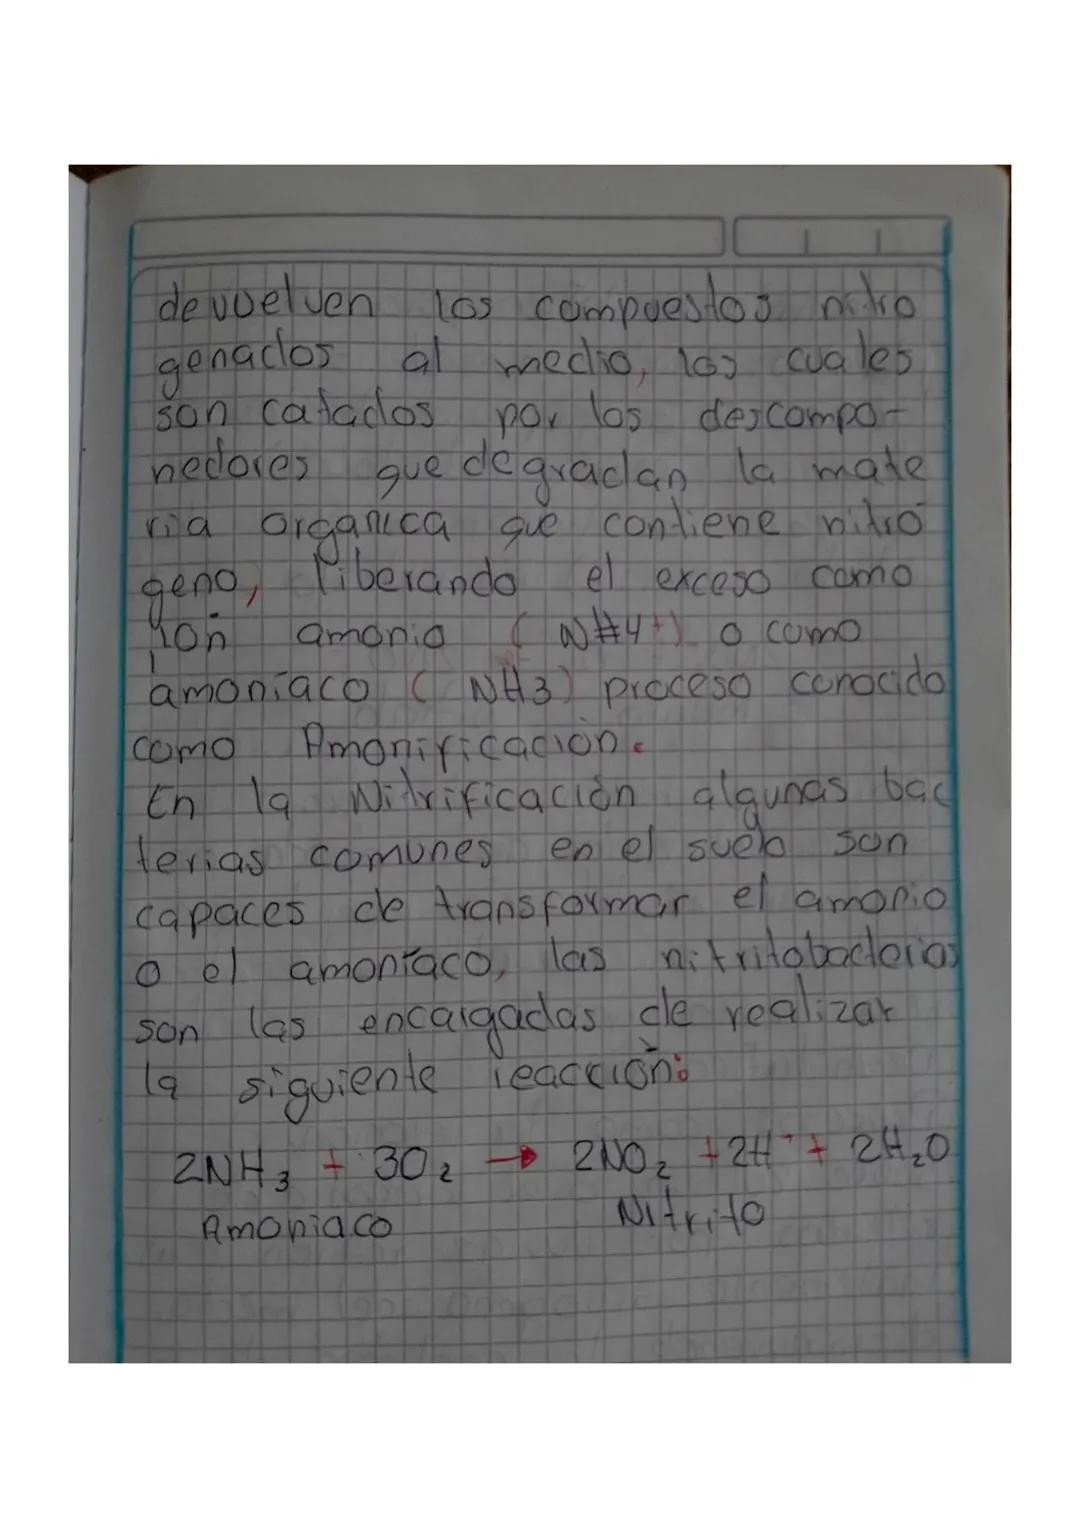 devuelven los compuestos nitro
genados al medio, los cuales
son catados por los descompo-
nedores que degradan la mate
ria organica que contiene nitró
geno, liberando el exceso como
ion amonio (NH4+) o como
amoníaco (NH3) proceso conocido
como Amonificación.
En la Nitrificación algunas bac
terias comunes en el suelo son
capaces de transformar el amonio
o el amoníaco, las nitritobacterias
son las encargadas de realizar
la siguiente reacción:
2NH3 + 3O2 → 2NO2 + 2H+ + 2H2O
Amoniaco Nitrito